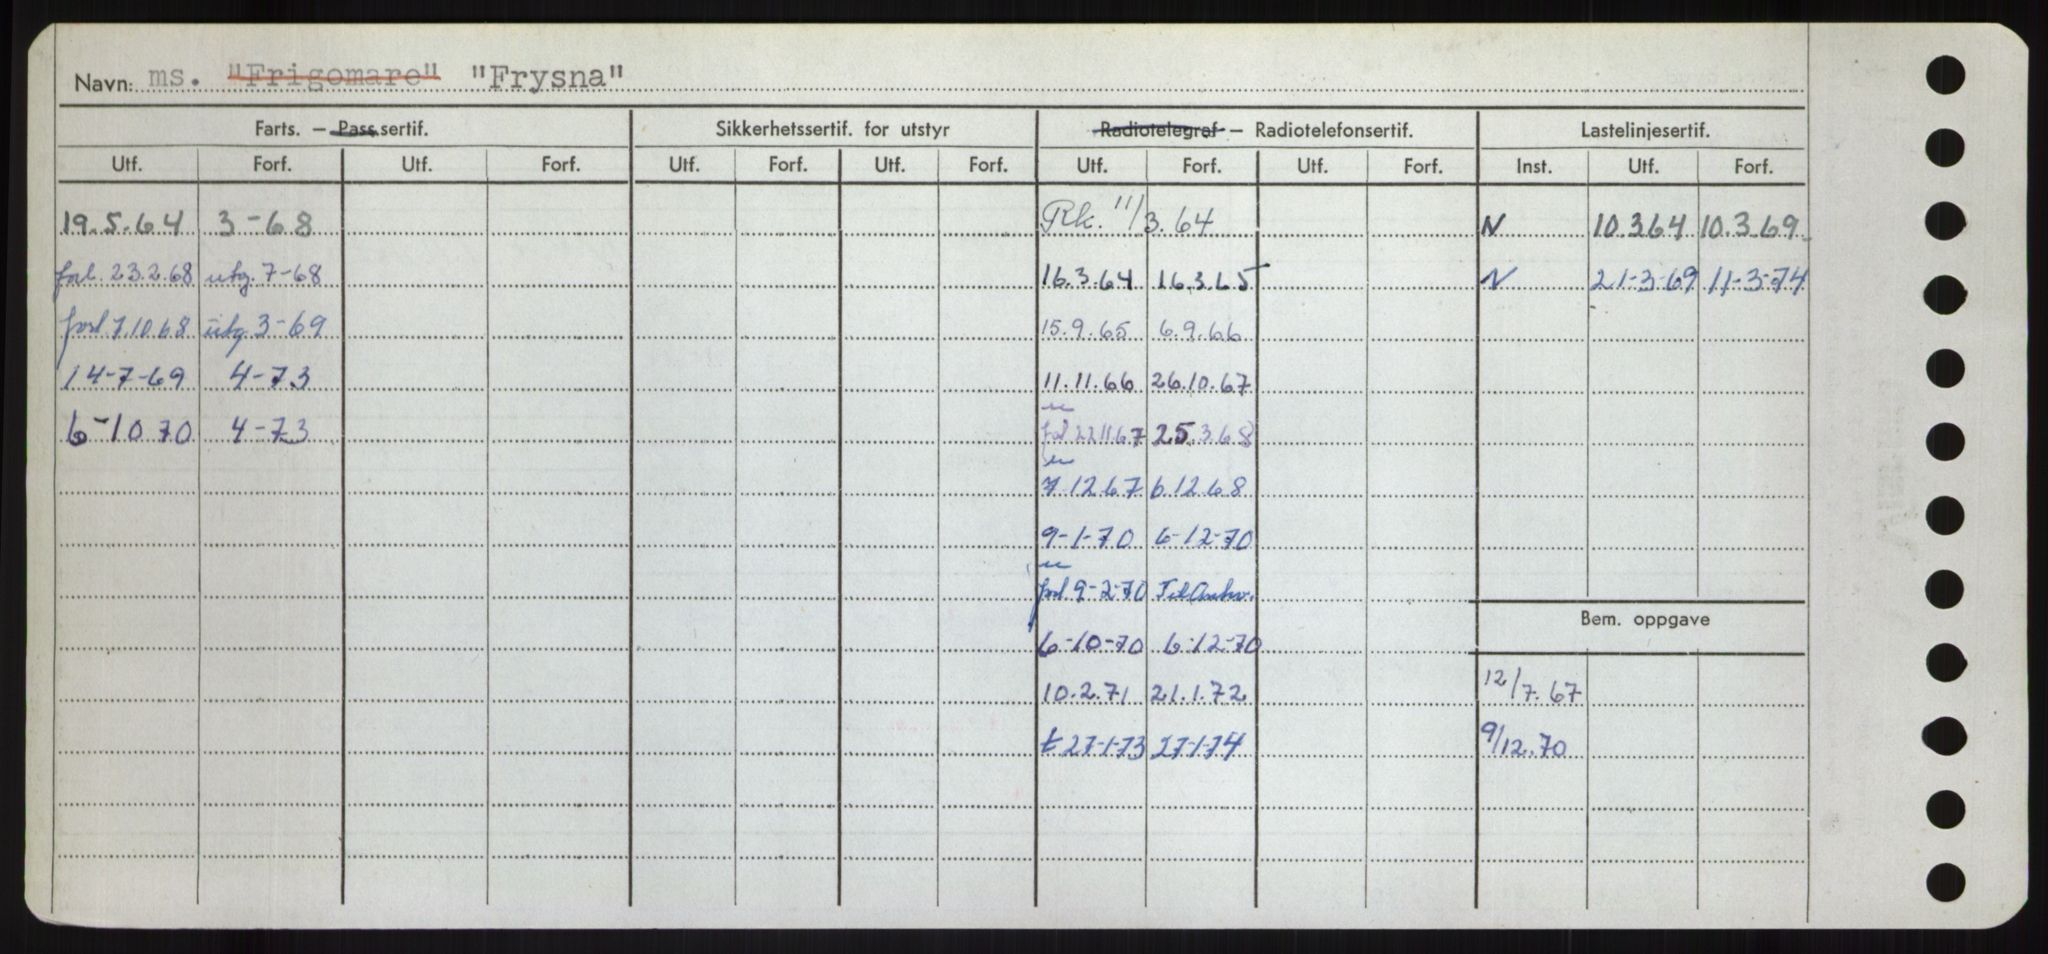 Navn: ms. "Frigomare" "Frysna"
Farts. — Pass.sertif. Sikkerhetssertif. for utstyr Radiotelegraf — Radiotelefonsertif. Lastelinjesertif.
Utf. Forf. Utf. Forf. Utf. Forf. Utf. Forf. Utf. Forf. Utf. Forf. Inst. Utf. Forf.
19.5.64 3-68 Rk. 11/3.64 N 10.3.64 10.3.69.
forl. 23.2.68 utg. 7-68 16.3.64 16.3.65 N 21-3-69 11-3-74
forl. 7.10.68 utg. 3-69 15.9.65 6.9.66
14-7-69 4-73 11.11.66 26.10.67
6-10 70 4-73 forl 22.11.67 25.3.68
7.12.67 6.12.68
9-1-70 6-12-70
forl. 9-2-70
Bem. oppgave
6-10-70 6-12-70
10.2.71 21.1.72 12/7.67
t 27-1-73 27-1-74 9/12.70